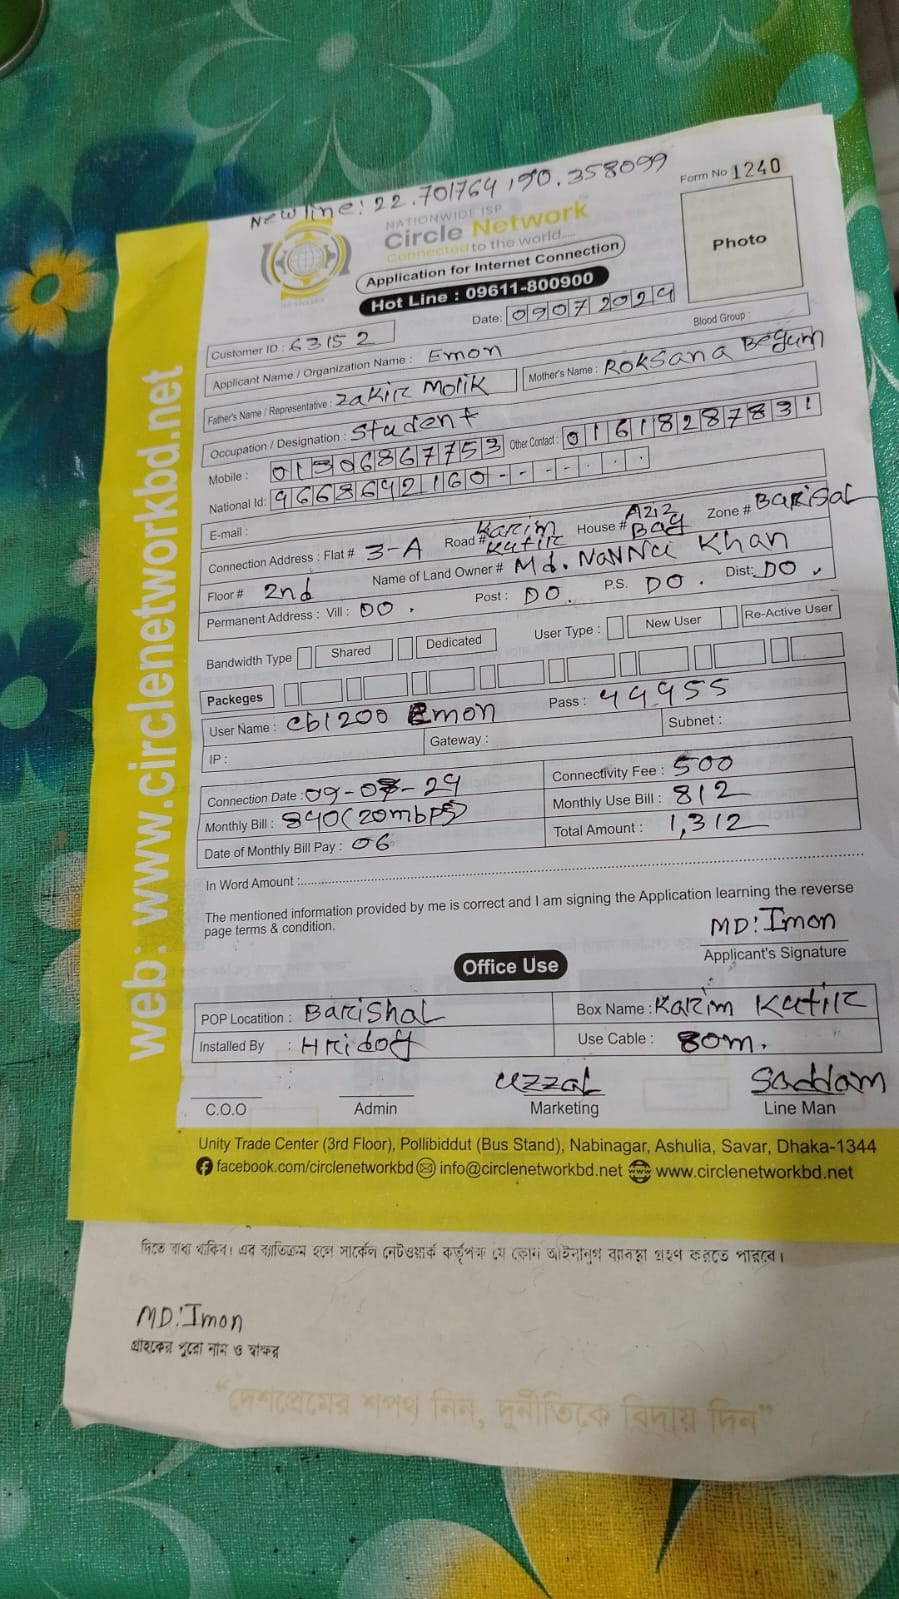 New line: 22.701764, 90.358099
Form No 1240
NATIONWIDE ISP
Circle Network
Connected to the world....
Application for Internet Connection
Hot Line : 09611-800900
Photo
Date: 09072024
Blood Group :
Customer ID : 63152
Applicant Name / Organization Name : Emon
Father's Name / Representative : Zakir Molik Mother's Name : Roksana Begum
Occupation / Designation : Student
Mobile : 01306867753 Other Contact : 01618287831
National Id: 9668642160
E-mail :
Connection Address : Flat # 3-A Road # Karim Kutir House # Aziz Bag Zone # Barisal
Floor # 2nd Name of Land Owner # Md. Khan
Permanent Address : Vill : DO . Post : DO . P.S. DO . Dist: DO .
Bandwidth Type Shared Dedicated User Type : New User Re-Active User
Packeges
User Name : cb1200 Emon Pass : 44955
IP : Gateway : Subnet :
Connection Date : 09-07-24 Connectivity Fee : 500
Monthly Bill : 840(20mbps) Monthly Use Bill : 812
Date of Monthly Bill Pay : 06 Total Amount : 1,312
In Word Amount :
The mentioned information provided by me is correct and I am signing the Application learning the reverse
page terms & condition.
MD: Imon
Applicant's Signature
Office Use
POP Locatition : Barishal Box Name : Karim Kutir
Installed By : Hridoy Use Cable : 80m.
Uzzal Saddam
C.O.O Admin Marketing Line Man
Unity Trade Center (3rd Floor), Pollibiddut (Bus Stand), Nabinagar, Ashulia, Savar, Dhaka-1344
facebook.com/circlenetworkbd info@circlenetworkbd.net www.circlenetworkbd.net
web: www.circlenetworkbd.net
দিতে বাধ্য থাকিব। এর ব্যতিক্রম হলে সার্কেল নেটওয়ার্ক কর্তৃপক্ষ যে কোন আইনানুগ ব্যাবস্থা গ্রহণ করতে পারবে।
MD: Imon
গ্রাহকের পুরো নাম ও স্বাক্ষর
“দেশপ্রেমের শপথ নিন, দুর্নীতিকে বিদায় দিন”